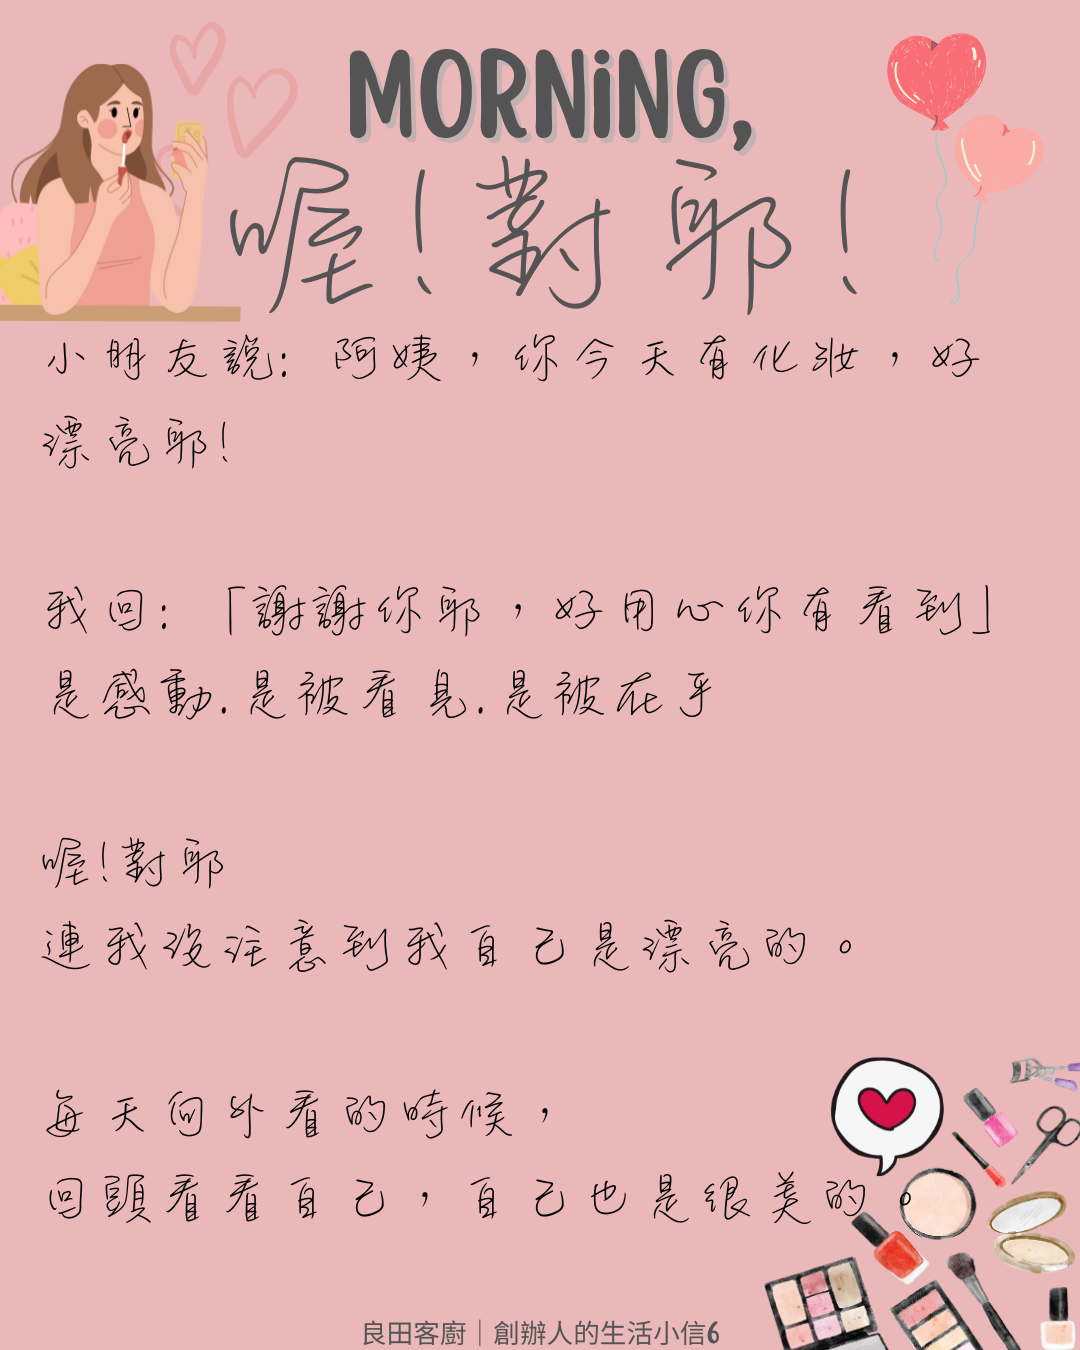 MORNiNG,
喔!對耶!
小朋友說: 阿姨，你今天有化妝，好
漂亮耶!
我回: 「謝謝你耶，好用心你有看到」
是感動.是被看見.是被在乎
喔!對耶
連我沒注意到我自己是漂亮的。
每天向外看的時候，
回頭看看自己，自己也是很美的。
良田客廚｜創辦人的生活小信6